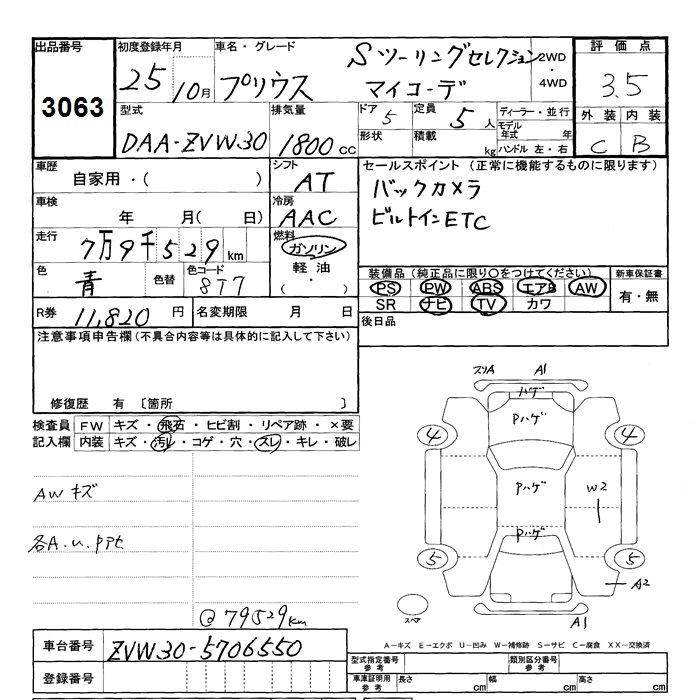 出品番号 初度登録年月 車名・グレード Sツーリングセレクション 2WD・4WD 評価点
3063 25 10月 プリウス マイコーデ 3.5
型式 排気量 ドア 5 定員 5人 ディーラー・並行 外装 内装
DAA-ZVW30 1800cc 形状 積載 kg モデル年式 年 ハンドル 左・右 C B
車歴 シフト セールスポイント(正常に機能するものに限ります)
自家用・( ) AT バックカメラ
車検 冷房 ビルトインETC
年 月( 日) AAC
走行 7万9千529km 燃料 ガソリン
色 青 色替 色コード 8T7 軽油 ( ・ )
装備品(純正品に限り○をつけてください) 新車保証書
PS PW ABS エアB AW 有・無
SR ナビ TV カワ
R券 11,820円 名変期限 月 日 後日品
注意事項申告欄(不具合内容等は具体的に記入して下さい)
修復歴 有 〔箇所 〕
検査員 FW キズ・飛石・ヒビ割・リペア跡・×要
記入欄 内装 キズ・汚レ・コゲ・穴・スレ・キレ・破レ
スリA A1
ハゲ
Pハゲ
4 4
AWキズ
Pハゲ W2
各A.U.P
Pハゲ
5 5
A2
@79529km
スペア A1
A-キズ E-エクボ U-凹み W-補修跡 S-サビ C-腐食 XX-交換済
車台番号 ZVW30-5706550
型式指定番号 参考 類別区分番号 参考
登録番号 車庫証明用 参考 長さ cm 幅 cm 高さ cm